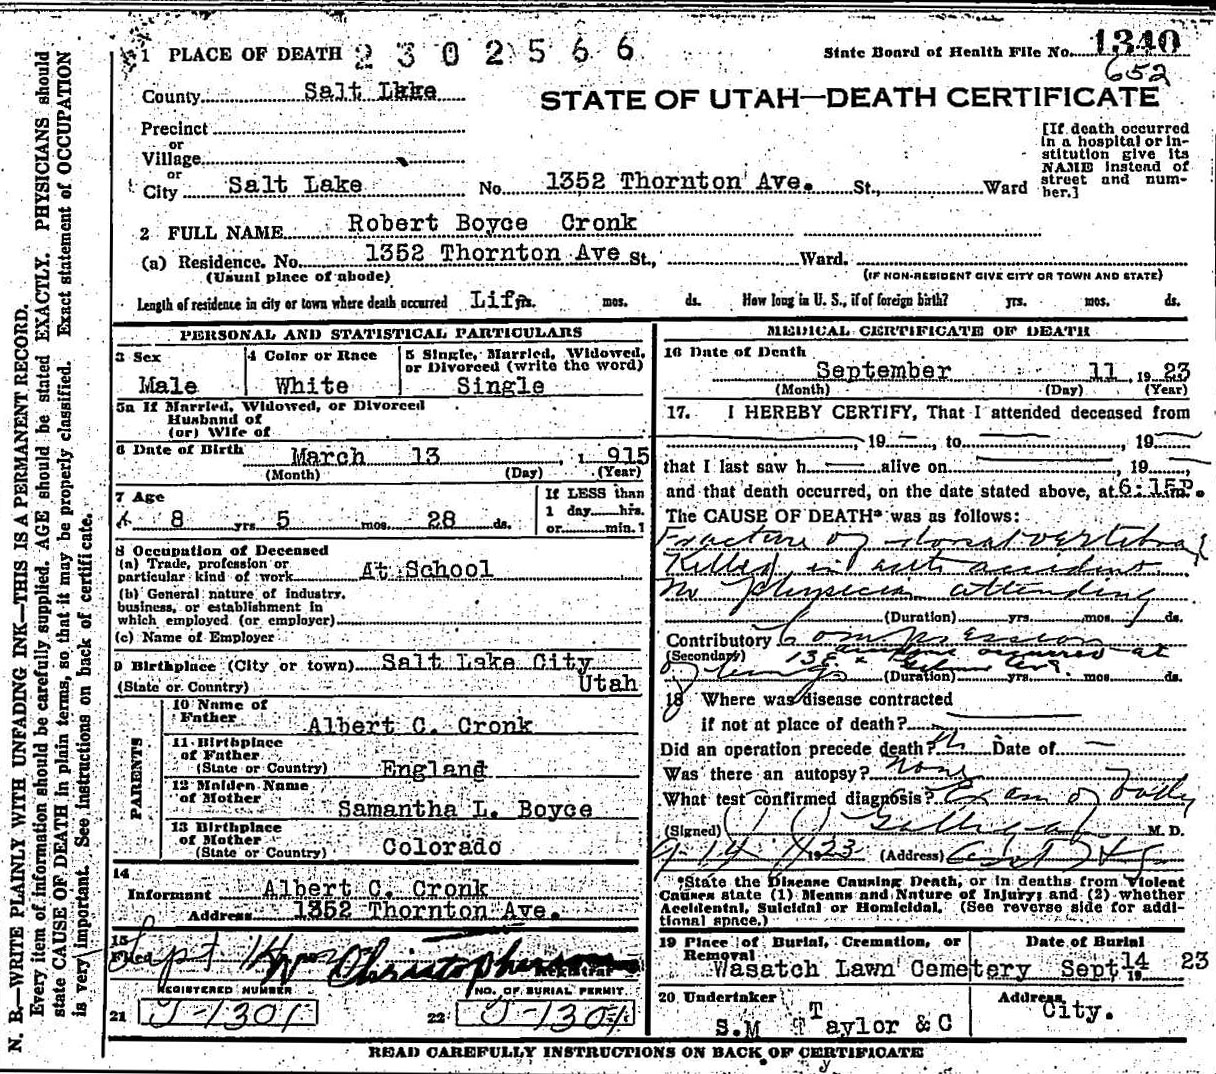 N. B.—WRITE PLAINLY WITH UNFADING INK—THIS IS A PERMANENT RECORD.
Every item of information should be carefully supplied. AGE should be stated EXACTLY. PHYSICIANS should
state CAUSE OF DEATH in plain terms, so that it may be properly classified. Exact statement of OCCUPATION
is very important. See instructions on back of certificate.
1 PLACE OF DEATH 2302566
State Board of Health File No. 1340
652
County Salt Lake
STATE OF UTAH—DEATH CERTIFICATE
Precinct
or
Village
or
City Salt Lake No. 1352 Thornton Ave. St., Ward
[If death occurred
in a hospital or in-
stitution give its
NAME instead of
street and num-
ber.]
2 FULL NAME Robert Boyce Cronk
(a) Residence. No. 1352 Thornton Ave St., Ward.
(Usual place of abode) (IF NON-RESIDENT GIVE CITY OR TOWN AND STATE)
Length of residence in city or town where death occurred Life yrs. mos. ds. How long in U. S., if of foreign birth? yrs. mos. ds.
PERSONAL AND STATISTICAL PARTICULARS
3 Sex 4 Color or Race 5 Single, Married, Widowed,
or Divorced (write the word)
Male White Single
5a If Married, Widowed, or Divorced
Husband of
(or) Wife of
6 Date of Birth March 13, 1 915
(Month) (Day) (Year)
7 Age If LESS than
8 yrs 5 mos. 28 ds. 1 day hrs.
or min. ?
8 Occupation of Deceased
(a) Trade, profession or
particular kind of work At School
(b) General nature of industry,
business, or establishment in
which employed (or employer)
(c) Name of Employer
9 Birthplace (City or town) Salt Lake City
(State or Country) Utah
PARENTS
10 Name of
Father Albert C. Cronk
11 Birthplace
of Father
(State or Country) England
12 Maiden Name
of Mother Samantha L. Boyce
13 Birthplace
of Mother
(State or Country) Colorado
14
Informant Albert C. Cronk
Address 1352 Thornton Ave.
15
Filed Sept 14 Christopherson
Registrar
REGISTERED NUMBER NO. OF BURIAL PERMIT
21 J-1301 22 J-1301
MEDICAL CERTIFICATE OF DEATH
16 Date of Death
September 11, 19 23
(Month) (Day) (Year)
17. I HEREBY CERTIFY, That I attended deceased from
, 19 , to , 19
that I last saw h alive on , 19
and that death occurred, on the date stated above, at 6:15P.m.
The CAUSE OF DEATH* was as follows:
Fracture of dorsal vertebrae
Killed in auto accident
No physician attending
(Duration) yrs. mos. ds.
Contributory Compression
(Secondary) occurred at
of lungs 13 (Duration) yrs. mos. ds.
18 Where was disease contracted
if not at place of death?
Did an operation precede death? No Date of
Was there an autopsy? None
What test confirmed diagnosis? Exam of body
(Signed) M. D.
9-14 1923 (Address)
*State the Disease Causing Death, or in deaths from Violent
Causes state (1) Means and Nature of Injury; and (2) whether
Accidental, Suicidal or Homicidal. (See reverse side for addi-
tional space.)
19 Place of Burial, Cremation, or Date of Burial
Removal
Wasatch Lawn Cemetery Sept 14 19 23
20 Undertaker Address
S.M Taylor & C City.
READ CAREFULLY INSTRUCTIONS ON BACK OF CERTIFICATE